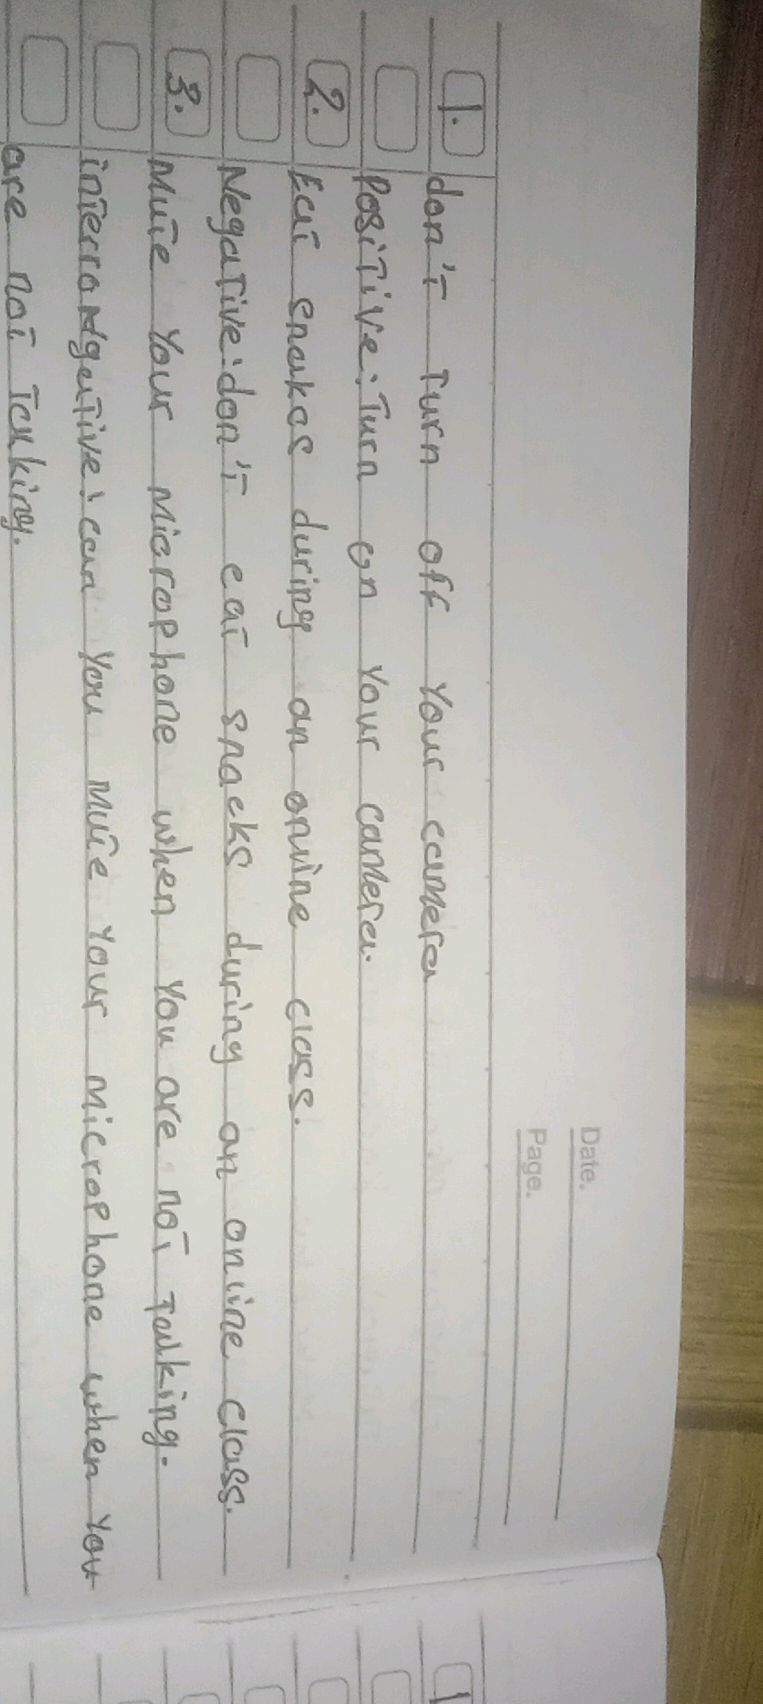 Date.
Page.
1. don't Turn off your camera
Positive: Turn on your camera.
2. Eat snakes during an online class.
Negative: don't eat snacks during an online class.
3. Mute your microphone when you are not talking.
interrongative: can you mute your microphone when you
are not talking.